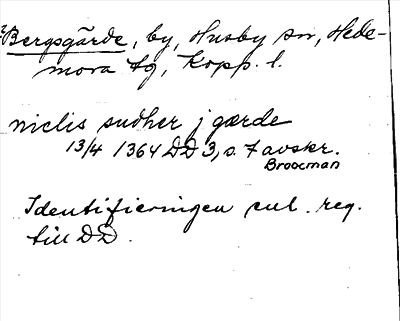 ? Bergsgärde, by, Husby sn, Hede-
mora tg, Kopp. l.
niclis sudher j gærde
13/4 1364 DD 3, s. 7 avskr.
Broocman
Identifieringen enl. reg.
till DD.